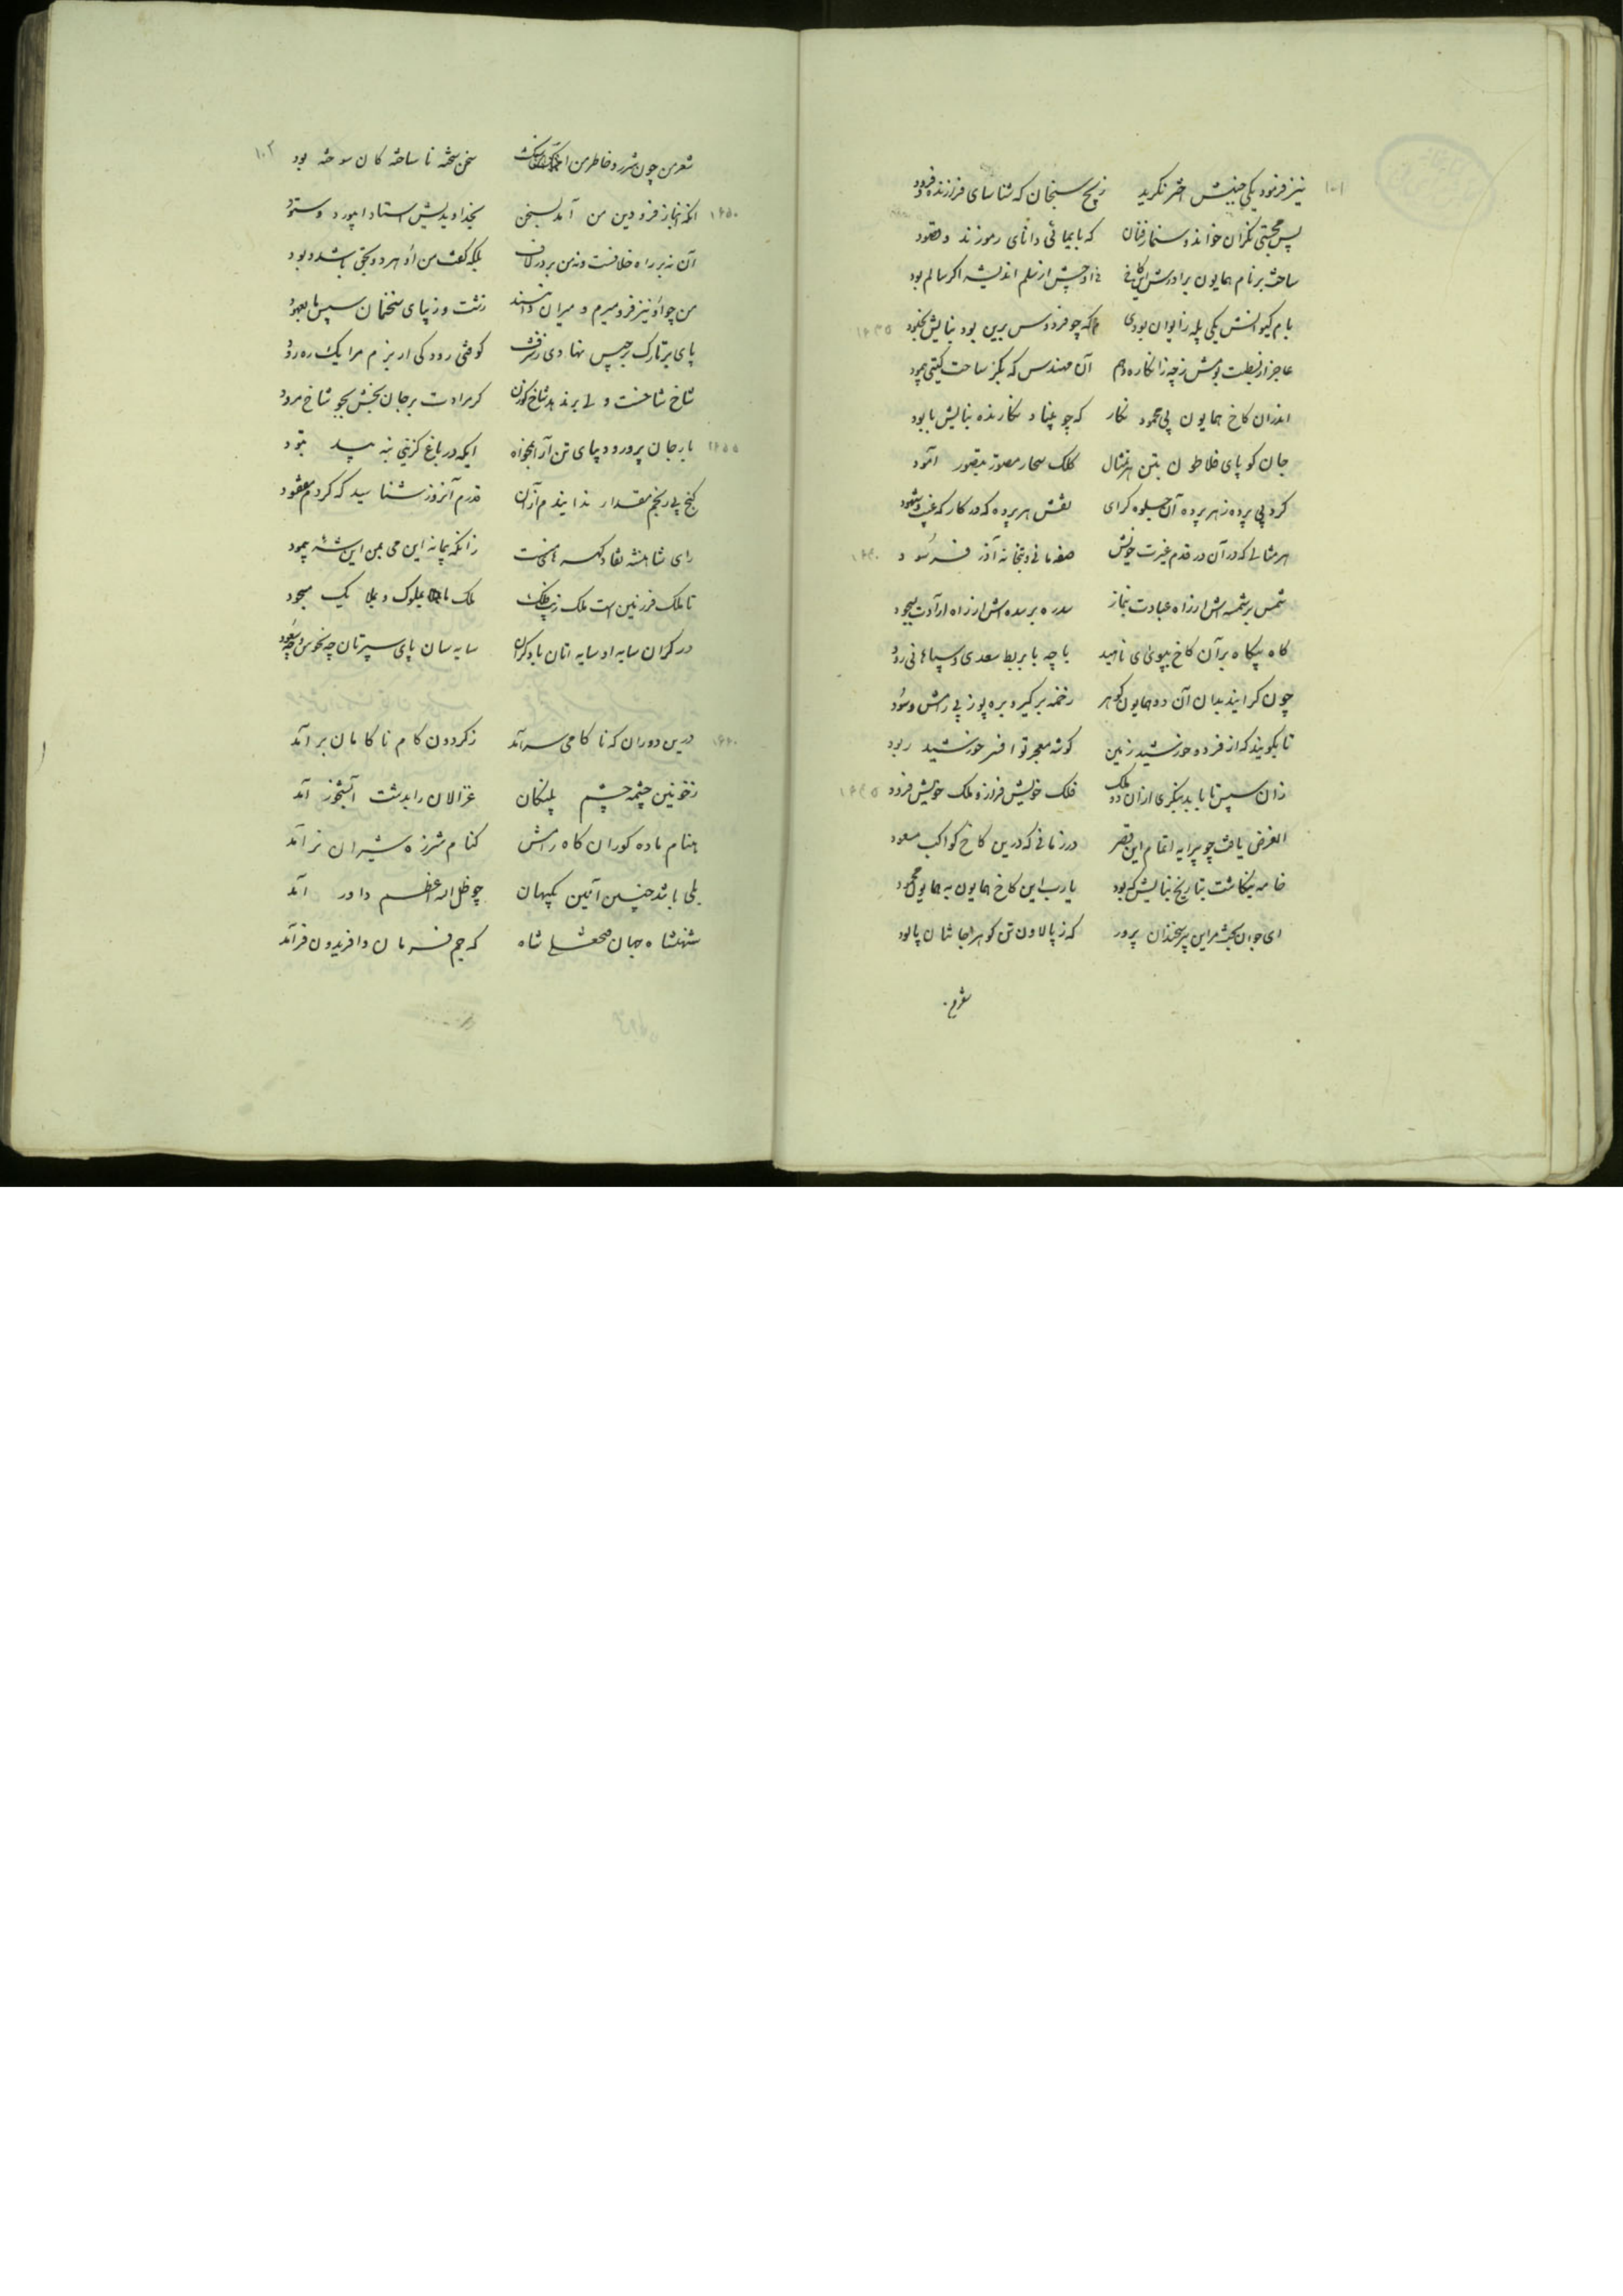 نیز فرمود یکی جنبش اختر نگرید زیج سنجان که شناسای فرازنده و فرود
پس مجستی نگران خواند و سنمار فنان که بایمائی دانای رموزند و عقود
ساخت بر نام همایون برادرش این کاخ
بام کیوانش یکی پله ز ایوان بودی که چو فردوس برین بود بنایش بخلود
عاجز از بسطت بومش زچه ز انگاره وهم آن مهندس که بگز ساحت گیتی پیمود
اندران کاخ همایون پی محمود نگار که چو بنیاد نگارنده بنایش بابود
جان گو پای فلاطون بتن هر تمثال کلک سحار مصور بتصور آمود
کرد پی پرده ز هر پرده آن جلوه گرای نقش هر پرده که در کارگه غیب و شهود
هر مثالی که در آن در قدم غیرت خویش صفه مانی و بتخانه آذر فرسود
شمس بر شمسه اش از راه عبادت بنماز سدره بر سده اش از راه ارادت بسجود
گاه بیگاه بر آن کاخ بپوئی ناهید با چه با بربط سعدی و سپاهانی رود
چون گرایند بدان آن دو همایون گوهر زخمه برگیرد و بره پوز پی رامش و سود
تا بگویند که از فر دو خورشید زمین گوشه معجر تو افسر خورشید ربود
زان سپس تا بابد بنگری از آن دو ملک فلک خویش فراز و ملک خویش فرود
الغرض یافت چو پیرایه اتمام این قصر در زمانی که درین کاخ کواکب مسعود
خامه بنگاشت بتاریخ بنایش که بود یارب این کاخ همایون به همایون محمود
ای جوان بخت مر این پیر سخندان پرور که ز پالاون تن گوهر جانشان پالود
شعر من
۱۰۱
۱۶۳۵
۱۶۴۰
۱۶۴۵
۱۰۲
شعر من چون شرر و خاطر من سخن پخته نا ساخته کان سوخته بود
۱۶۵۰
آنکه انباز فزودین من آمد بسخن بخداوندیش استاد ابیورد و ستود
آن نه بر راه خلافست و نه من بر در لاف بلکه گفت من او هر دو بحق باشد و بود
من چو او نیز فرو میرم و میران دانند زشت و زیبای سخنمان سپس ما بعهود
پای بر تارک برجیس نهادی ز شرف گو فتی رودکی ار بزم مرا یک ره رود
شاخ شاخست ولی بر ندهد شاخ گوزن گر مرادت بر جان بخش بجو شاخ مرود
۱۶۵۵
بار جان پرور و دیبای تن آرا بخواه ایکه در باغ گزینی بنه بید بتود
گنج بی رنجم مقدار ندانیدم از آن قدرم آنروز شناسید که گردم مفقود
رای شاهنشه نقاد گهر سنج منست زانکه پیمانه این می بمن این شه پیمود
تا ملک فرزنین است ملک زیب فلک ملک با بملوک و بملایک مسجود
در گران سایه او سایه اتان باد گران سایه سان پای سپرتان چه نحوس و چه سعود
۱۶۶۰
درین دوران که ناکامی سرآمد ز گردون کام ناکامان برآمد
ز خونین چشمه چشم پلنگان غزالان را بدشت آبشخور آمد
بنام ماده گوران گاه رامش کنام شرزه شیران نر آمد
بلی باشد چنین آئین کیهان چو ظل الله اعظم داور آمد
شهنشاه جهان فتحعلی شاه که جم فرمان و افریدون فر آمد